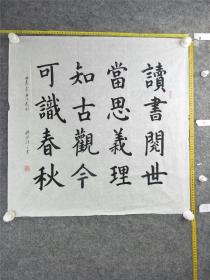 讀書閱世
當思義理
知古觀今
可識春秋